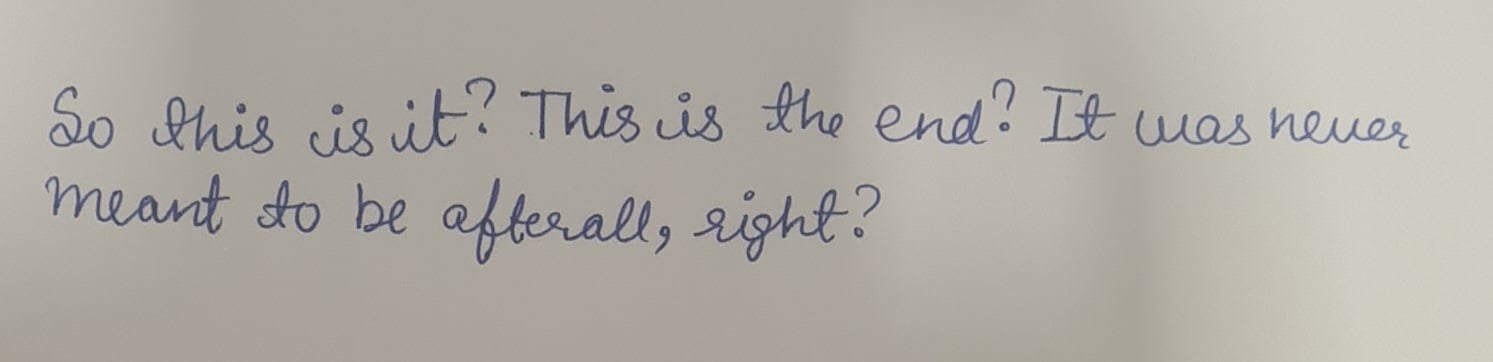 So this is it? This is the end? It was never
meant to be afterall, right?